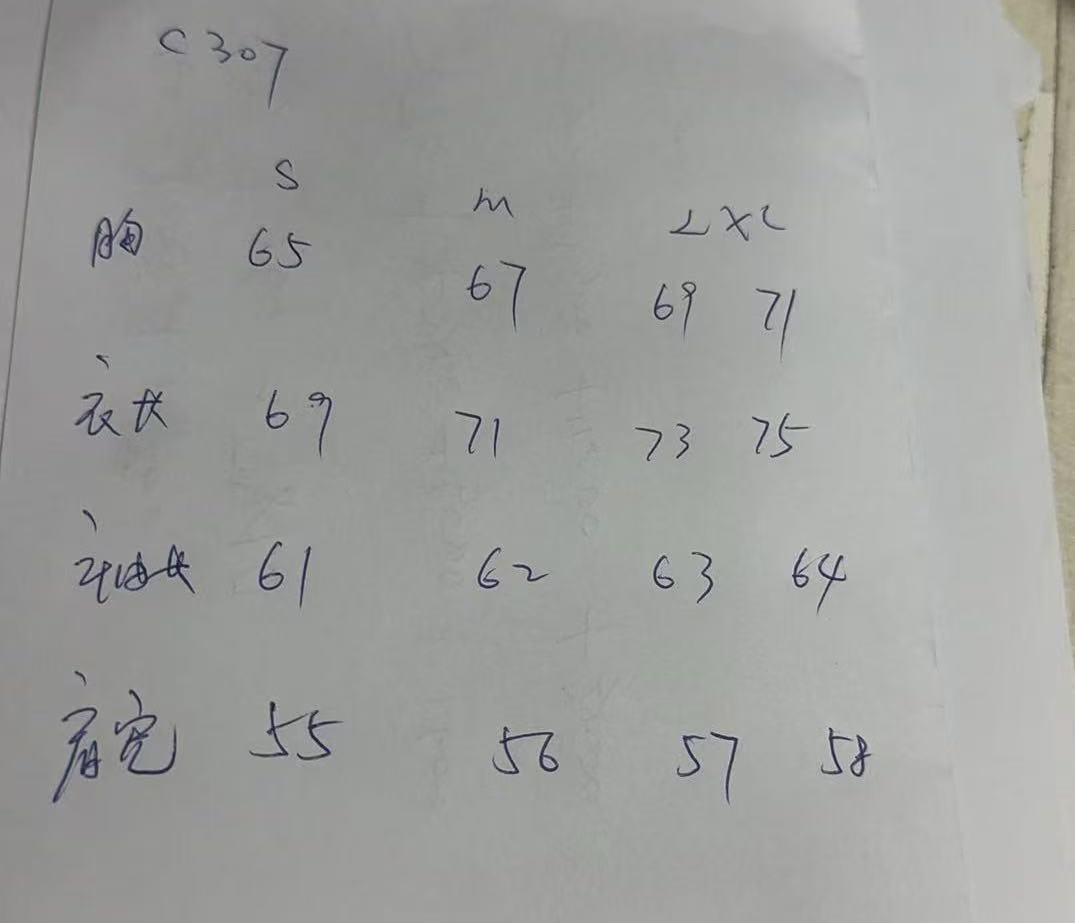 C307
S M L XL
胸 65 67 69 71
衣长 69 71 73 75
袖长 61 62 63 64
肩宽 55 56 57 58